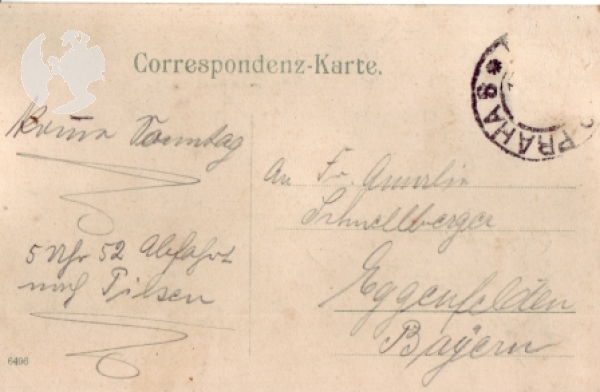 Correspondenz-Karte.
PRAHA 8 *
Komme Sonntag
5 Uhr 52 Abfahrt
nach Pilsen
An Fr. Amalie
Schnellberger
Eggenfelden
Bayern
6496